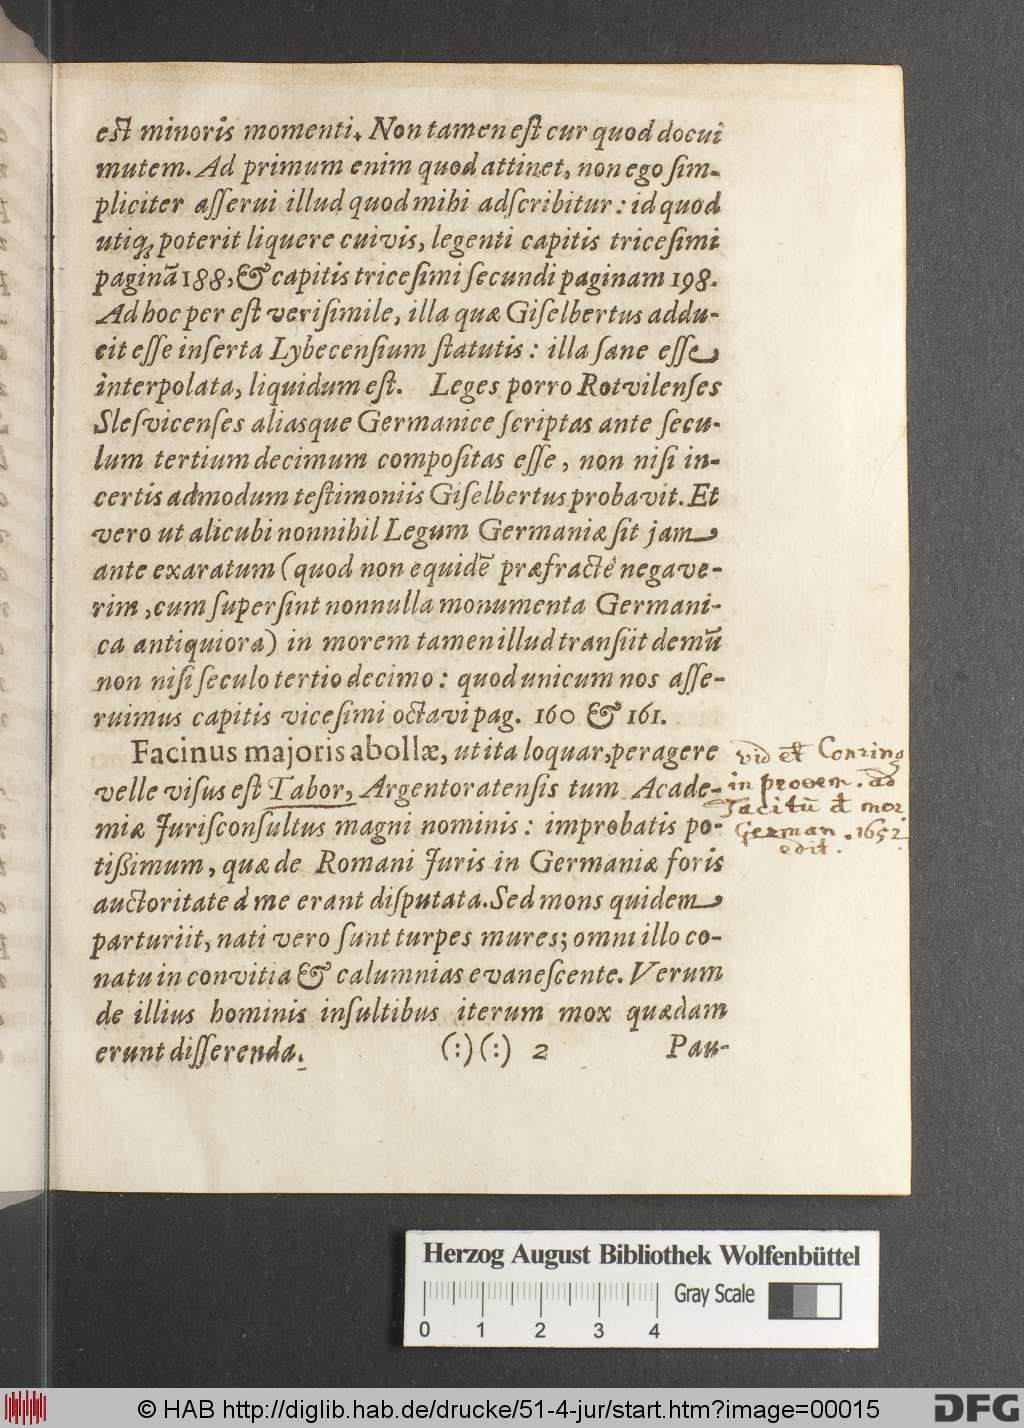 est minoris momenti. Non tamen est cur quod docui
mutem. Ad primum enim quod attinet, non ego sim-
pliciter asserui illud quod mihi adscribitur: id quod
utiq; poterit liquere cuivis, legenti capitis tricesimi
paginã 188, & capitis tricesimi secundi paginam 198.
Ad hoc per est verisimile, illa quæ Giselbertus addu-
cit esse inserta Lybecensium statutis: illa sane esse
interpolata, liquidum est. Leges porro Rotvilenses
Slesvicenses aliasque Germanice scriptas ante secu-
lum tertium decimum compositas esse, non nisi in-
certis admodum testimoniis Giselbertus probavit. Et
vero ut alicubi nonnihil Legum Germaniæ sit jam
ante exaratum (quod non equidẽ præfractè negave-
rim, cum supersint nonnulla monumenta Germani-
ca antiquiora) in morem tamen illud transiit demũ
non nisi seculo tertio decimo: quod unicum nos asse-
ruimus capitis vicesimi octavi pag. 160 & 161.
Facinus majoris abollæ, ut ita loquar, peragere
velle visus est Tabor, Argentoratensis tum Acade-
miæ Jurisconsultus magni nominis: improbatis po-
tißimum, quæ de Romani Juris in Germaniæ foris
auctoritate à me erant disputata. Sed mons quidem
parturiit, nati vero sunt turpes mures; omni illo co-
natu in convitia & calumnias evanescente. Verum
de illius hominis insultibus iterum mox quædam
erunt disserenda. (:)(:) 2 Pau-
vid et Conring
in prooem. ad
Tacitũ d mor.
German. 1652
edit.
Herzog August Bibliothek Wolfenbüttel
Gray Scale
0 1 2 3 4
© HAB http://diglib.hab.de/drucke/51-4-jur/start.htm?image=00015
DFG